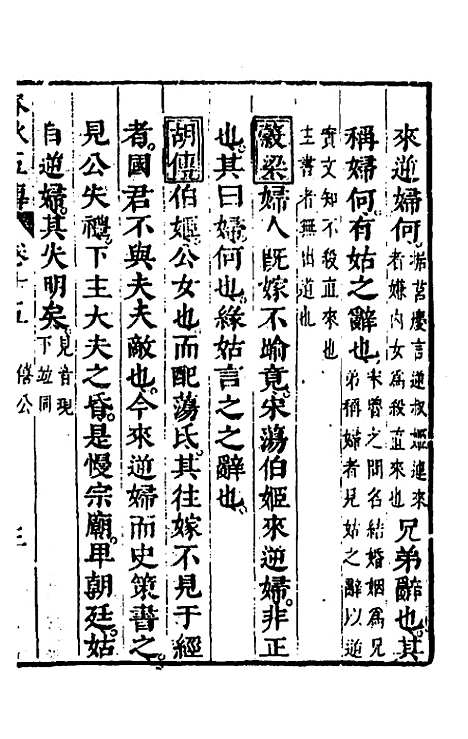 來逆婦何据莒慶言逆叔姬連來者嫌內女爲殺直來也兄弟辭也其
稱婦何有姑之辭也宋魯之間名結婚姻爲兄弟稱婦者見姑之辭以逆
實文知不殺直來也主書者無出道也
穀梁婦人旣嫁不踰竟宋蕩伯姬來逆婦非正
也其曰婦何也緣姑言之之辭也
胡傳伯姬公女也而配蕩氏其往嫁不見于經
者國君不與夫夫敵也今來逆婦而史策書之
見公失禮下主大夫之昏是慢宗廟卑朝廷姑
自逆婦其失明矣見音現下並同
春秋五傳 卷十五 僖公 三